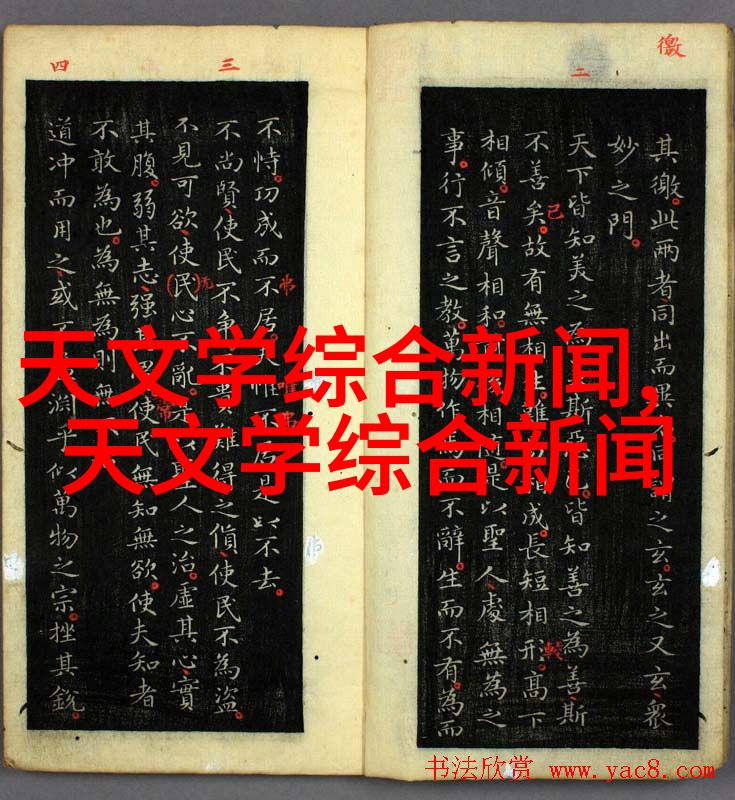 徼
二
其徼。此两者同出而異同謂之玄。玄之又玄、衆
妙之門。
天下皆知美之為斯惡已。皆知善之為善斯
不善矣。故有無相生。難相成。長短相形。高下
相傾。音聲相和。相是以聖人處無為之
事。行不言之教。萬物作焉而不辭。生而不有。為而
三
四
不恃。功成而不居。夫惟不居是以不去。
不尚賢、使民不争不貴難得之貨、使民不為盗。
不見可欲、使民心不亂。是以聖人之治。虚其心、實
其腹。弱其志、强其使民無知無欲。使夫知者
不敢為也。為無為則無
道冲而用之、或不淵乎似萬物之宗。挫其銳。
天文学综合新闻,
天文学综合新闻
书法欣赏 www.yac8.com